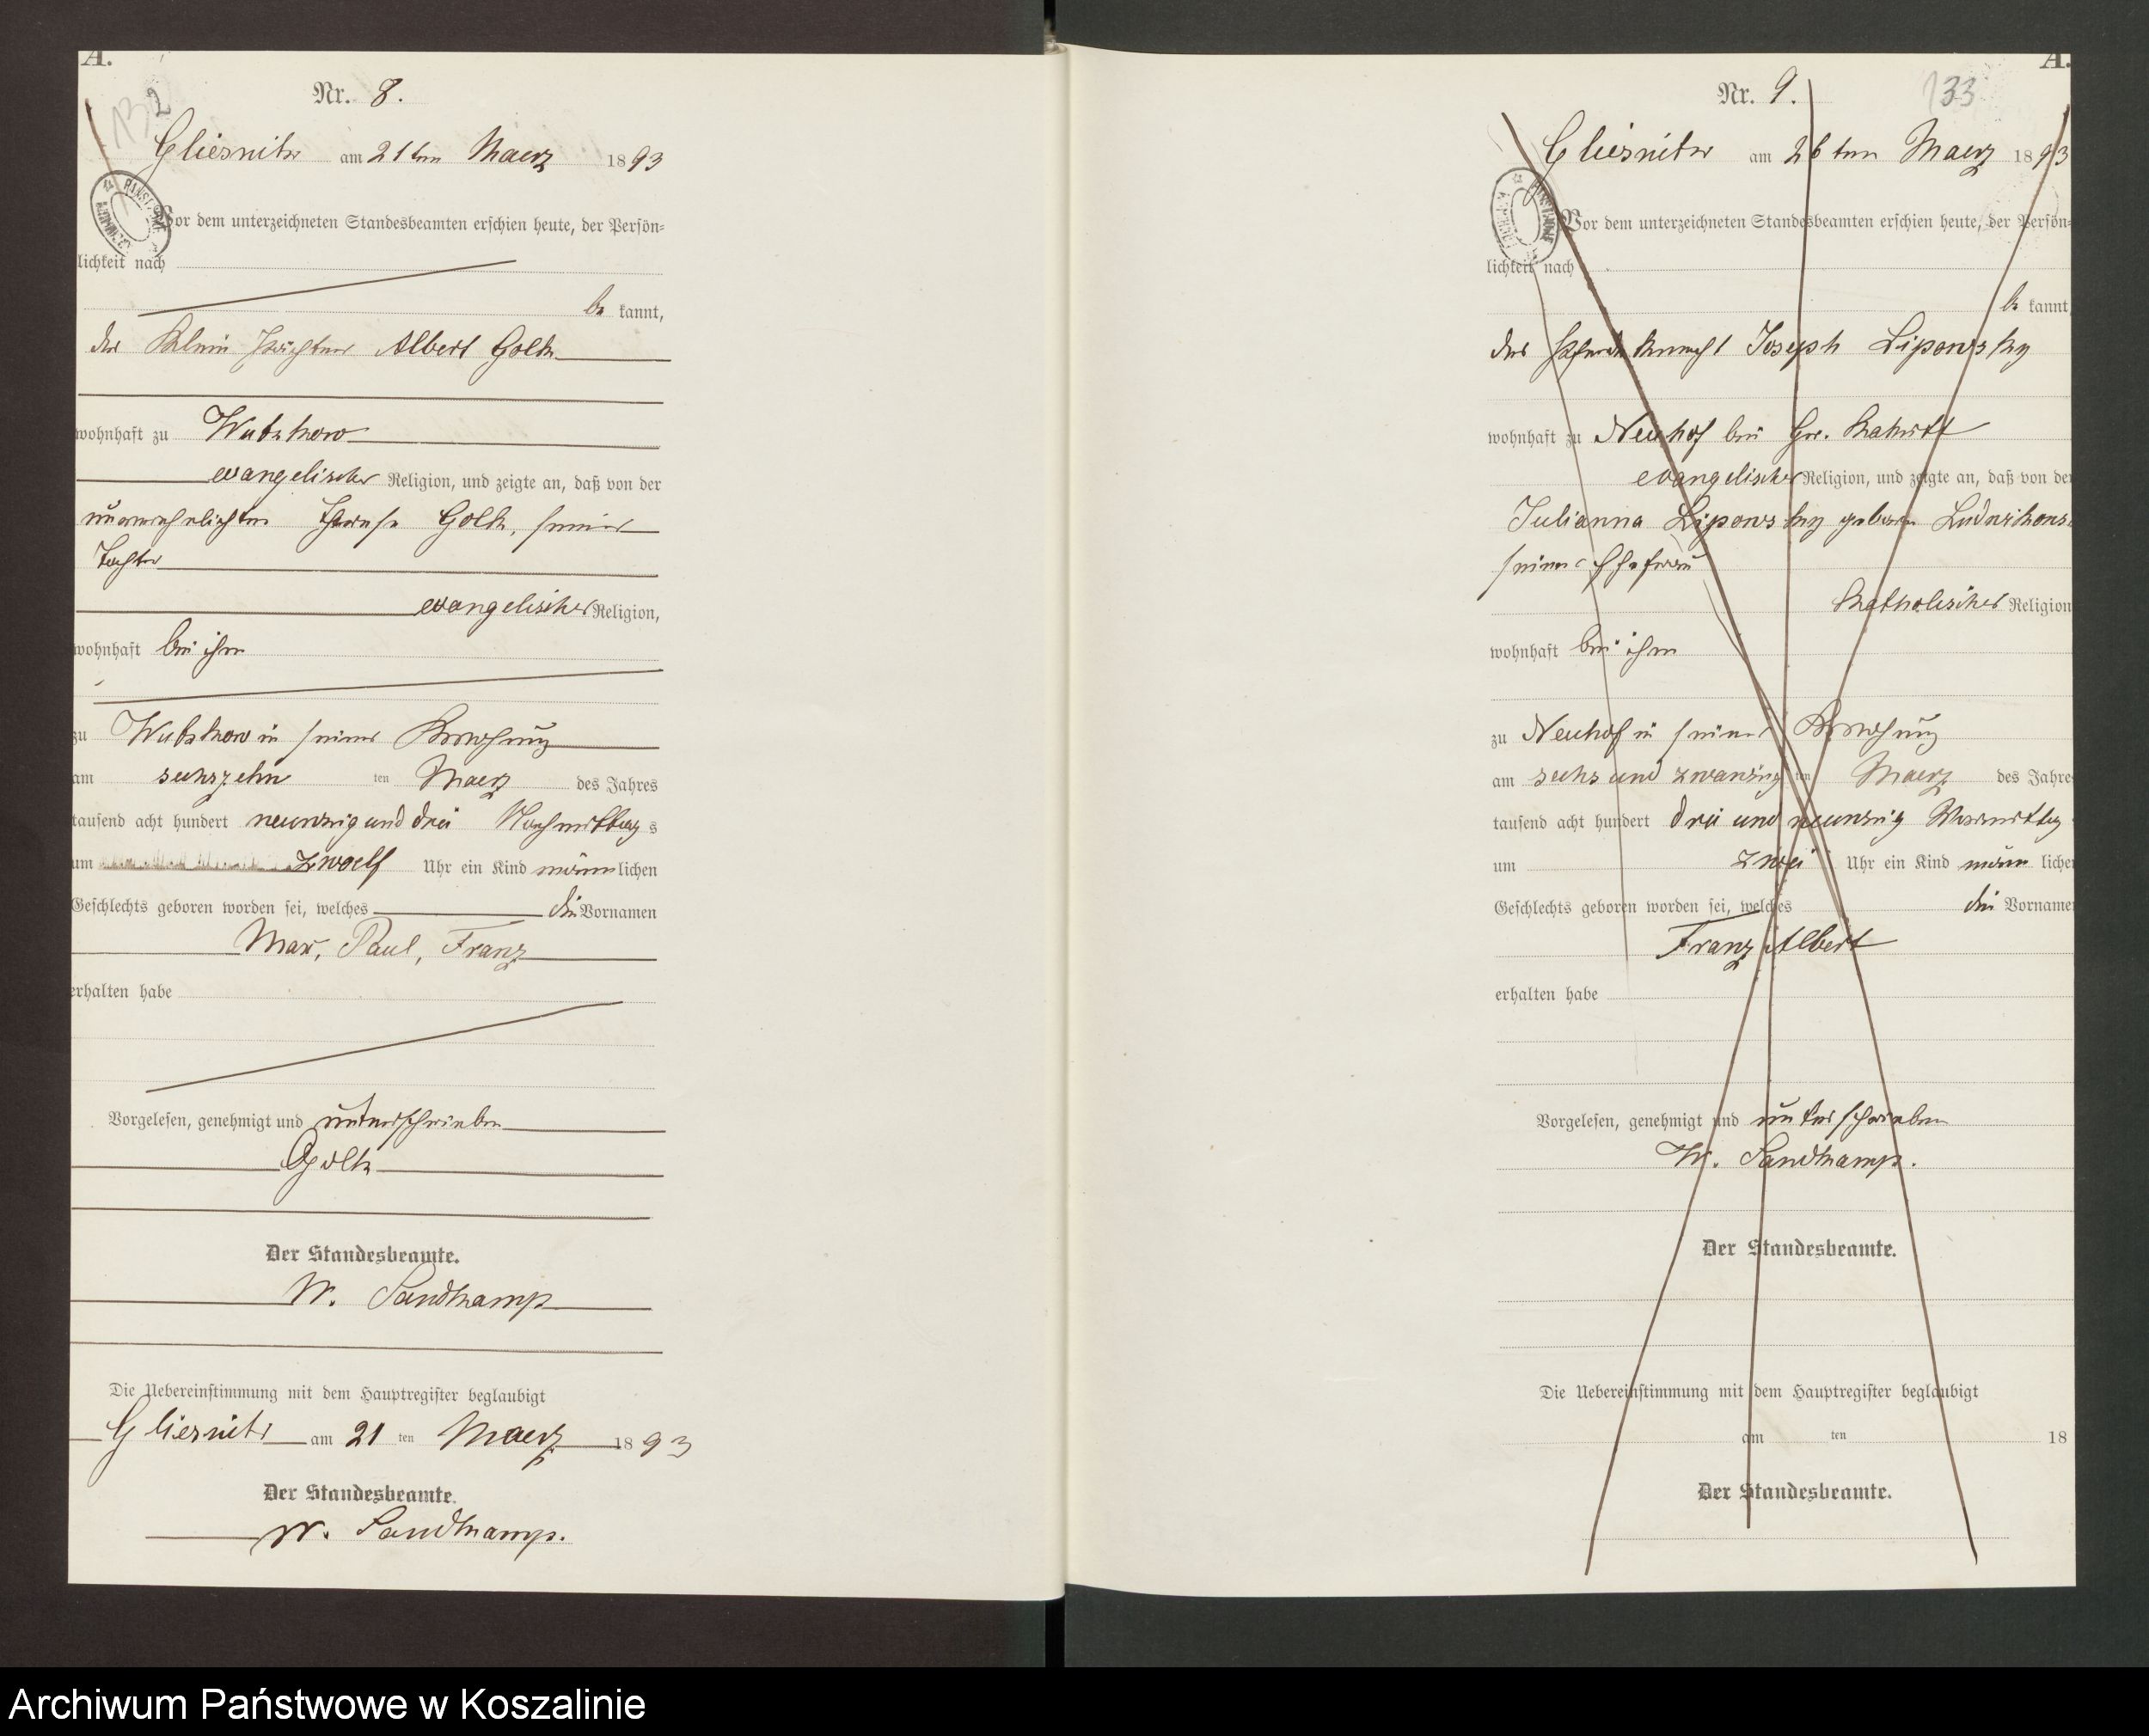 A.
Nr. 8.
Gliesnitz am 21ten Maerz 1893
Vor dem unterzeichneten Standesbeamten erschien heute, der Persön-
lichkeit nach
be kannt,
der Klein Pächter Albert Goltz
wohnhaft zu Wutzkow
evangelischer Religion, und zeigte an, daß von der
unverehelichten Therese Goltz, seiner
Tochter
evangelischer Religion,
wohnhaft bei ihm
zu Wutzkow in seiner Behausung
am sechszehn ten Maerz des Jahres
tausend acht hundert neunzig und drei Nachmittags
um zwoelf Uhr ein Kind männlichen
Geschlechts geboren worden sei, welches die Vornamen
Max, Paul, Franz
erhalten habe
Vorgelesen, genehmigt und unterschrieben
Goltz
Der Standesbeamte.
W. Sandkamp
Die Uebereinstimmung mit dem Hauptregister beglaubigt
Gliesnitz am 21 ten Maerz 1893
Der Standesbeamte.
W. Sandkamp.
A.
133
Nr. 9.
Gliesnitz am 26ten Maerz 1893
Vor dem unterzeichneten Standesbeamten erschien heute, der Persön-
lichkeit nach
be kannt
der Pferdeknecht Joseph Lipowsky
wohnhaft zu Neuhof bei Gr.
evangelischer Religion, und zeigte an, daß von der
Julianna Lipowsky geboren
seiner Ehefrau
katholischer Religion
wohnhaft bei ihm
zu Neuhof in seiner Behausung
am sechs und zwanzig ten Maerz des Jahres
tausend acht hundert drei und neunzig Vormittag
um zwei Uhr ein Kind männ lichen
Geschlechts geboren worden sei, welches die Vornamen
Franz Albert
erhalten habe
Vorgelesen, genehmigt und unterschrieben
W. Sandkamp.
Der Standesbeamte.
Die Uebereinstimmung mit dem Hauptregister beglaubigt
am ten 18
Der Standesbeamte.
Archiwum Państwowe w Koszalinie